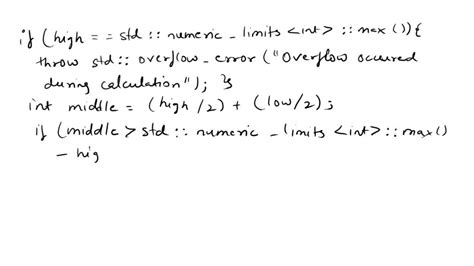 if (high == std :: numeric_limits <int> :: max ()){
throw std :: overflow_error ("Overflow occured
during calculation"); }
int middle = (high/2) + (low/2);
if (middle > std :: numeric_limits <int> :: max()
- hig